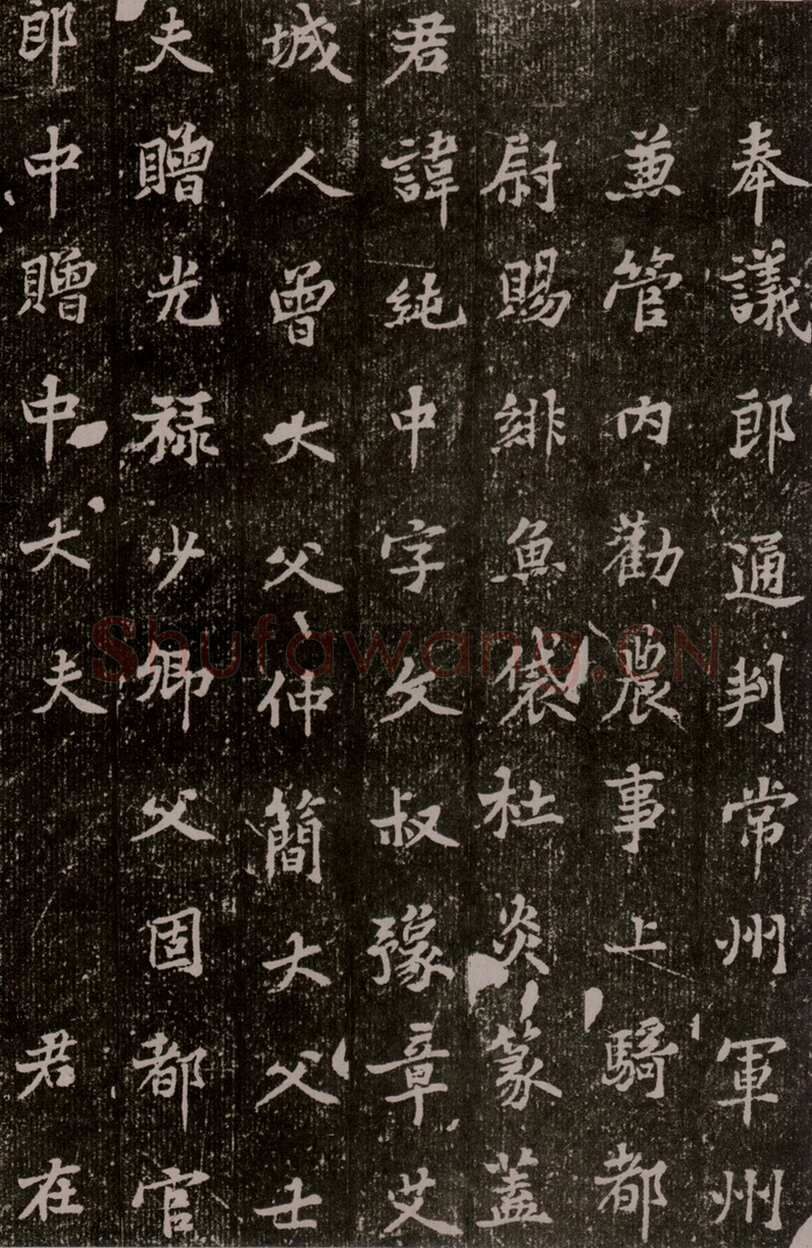 奉議郎通判常州軍州
兼管內勸農事上騎都
尉賜緋魚袋杜炎篆蓋
君諱純中字文叔豫章艾
城人曾大父仲簡大父士
夫贈光祿少卿父固都官
郎中贈中大夫 君在
Shufawang.CN